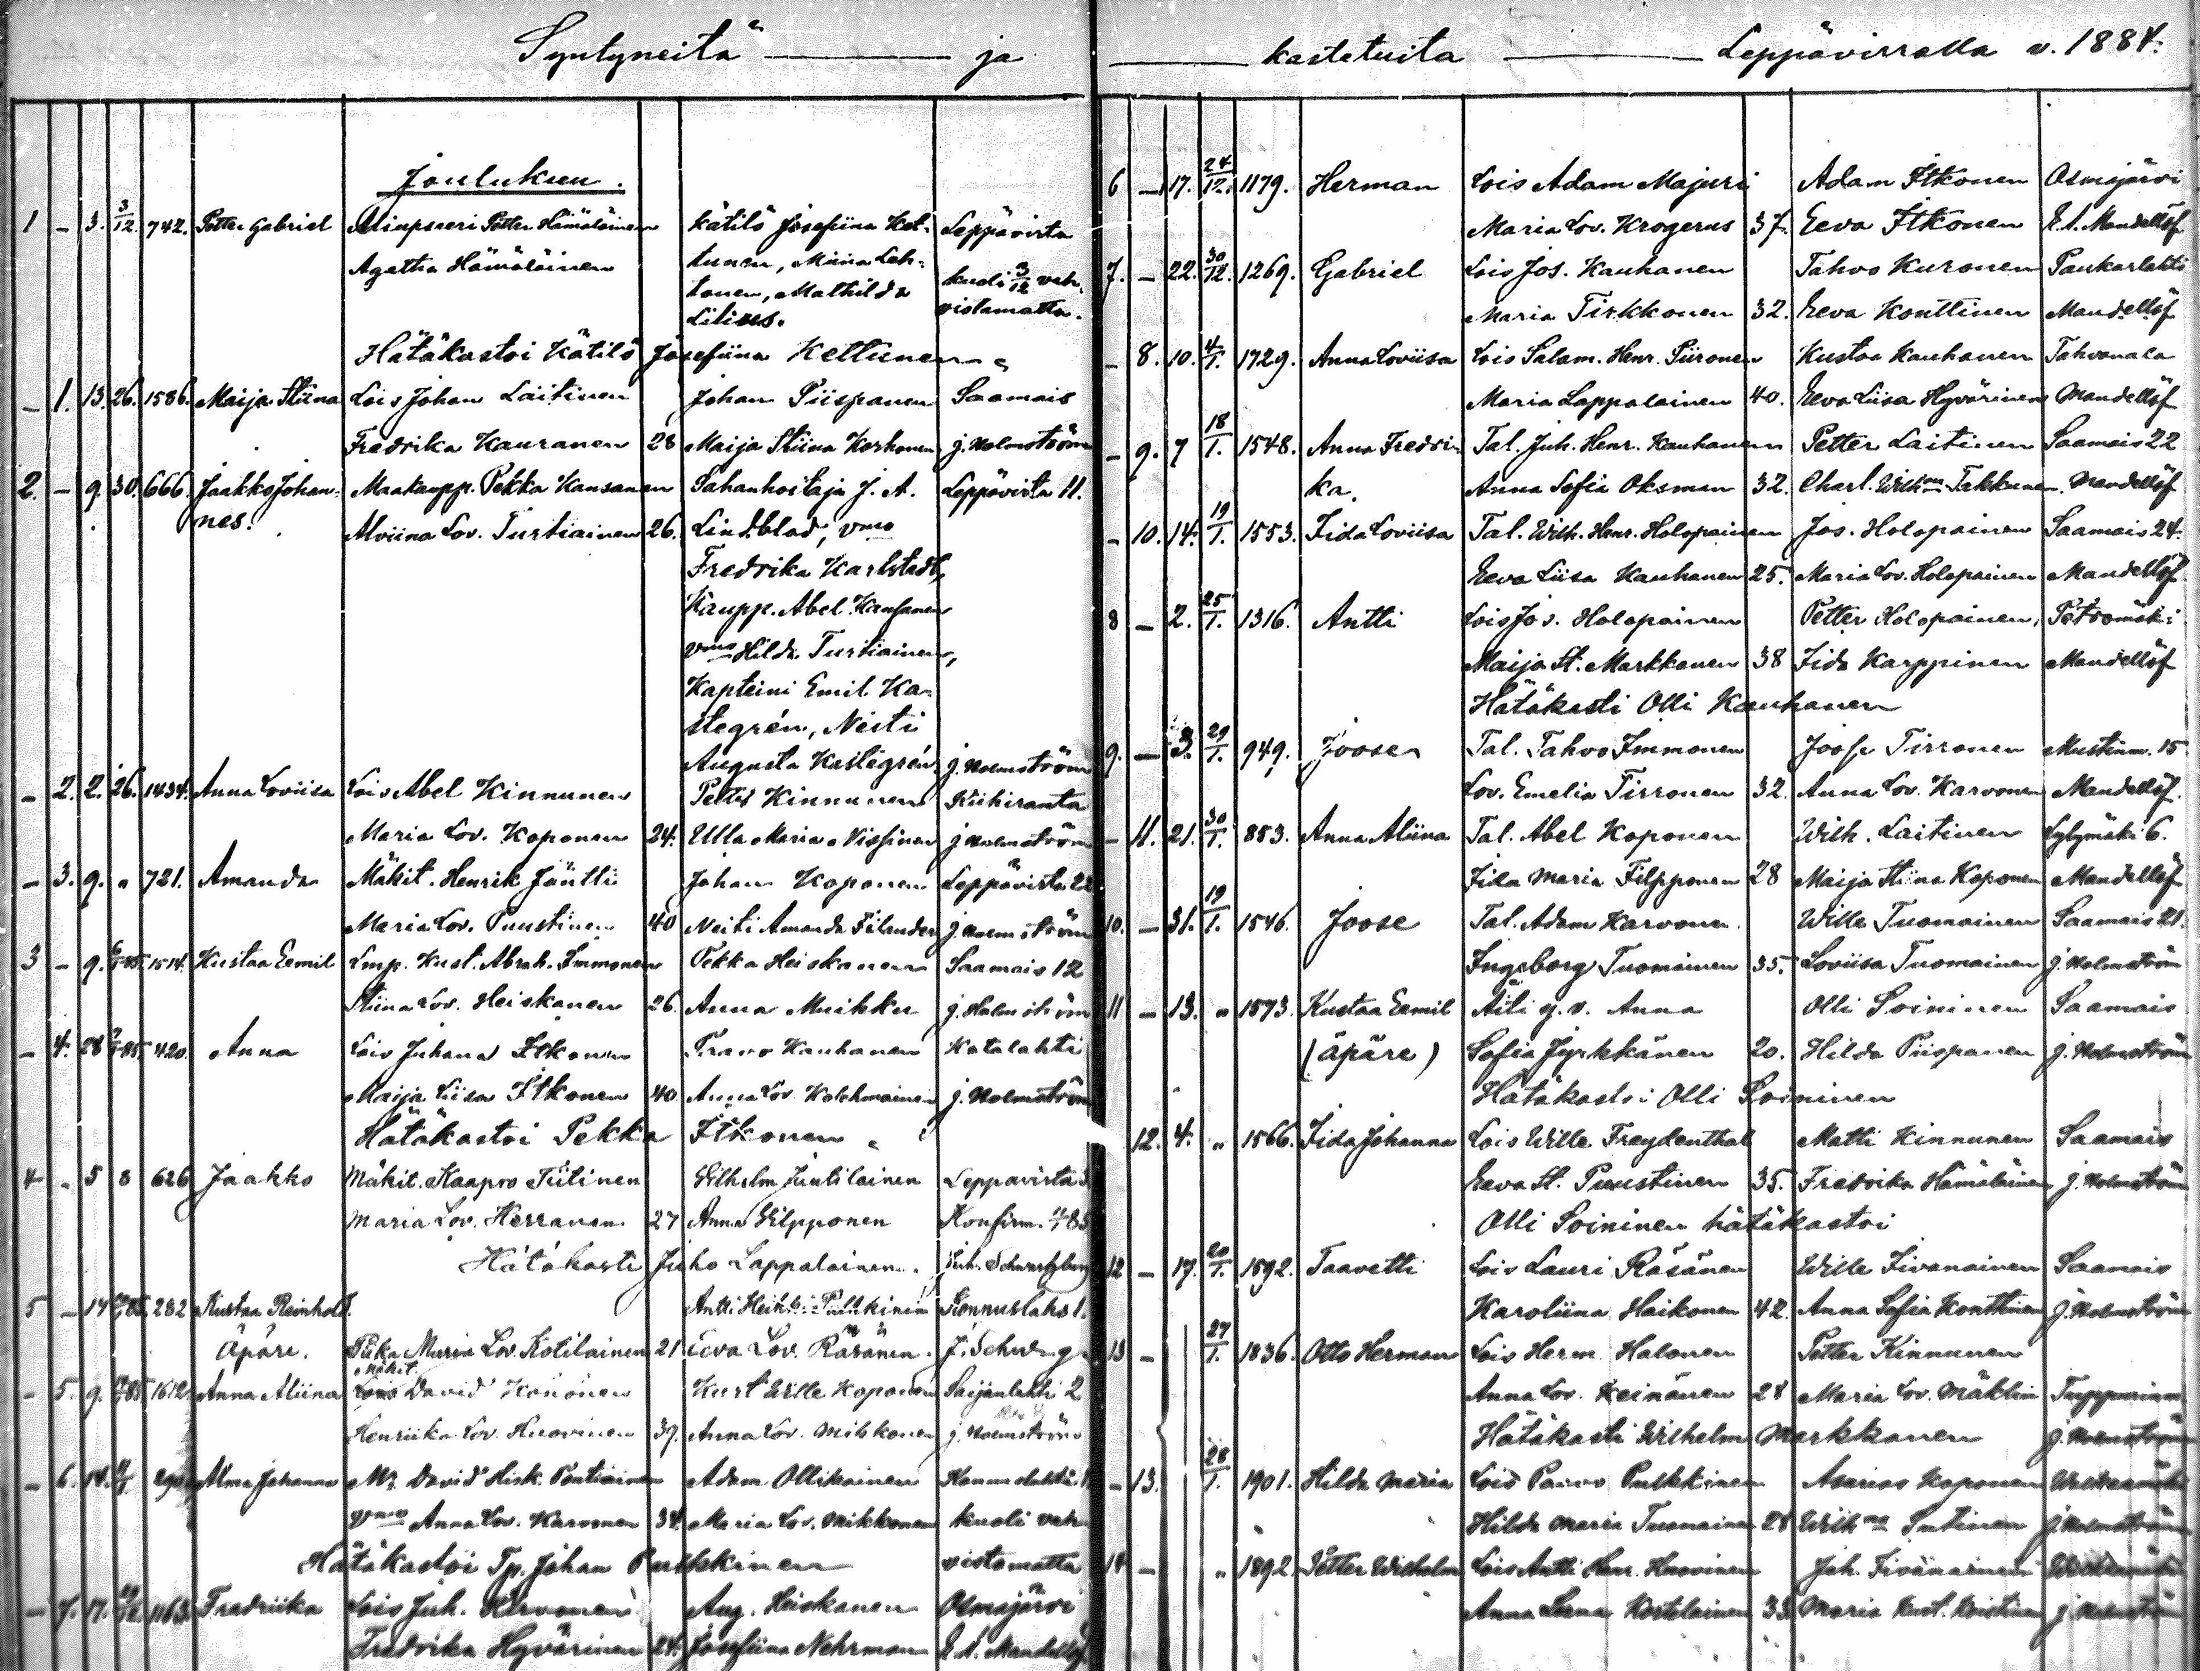 Syntyneitä — ja
Joulukuu.
1 – 3. 3/12. 742. Petter Gabriel Petter Hämäläinen kätilö Josefiina Ket- Leppävirta
Agatha Hämäläinen tunen, Miina Leh- kuoli 3/12 vah-
tonen, Mathilda vistamatta.
Hätäkastoi Kätilö Josefiina Kettunen
– 1. 13. 26. 1586. Maija Stiina Lois Johan Laitinen Johan Piispanen Saamais
Fredrika Kauranen 28 Maija Stiina Korhonen j. Holmström
2. – 9 30. 666. Jaakko Johan- Maakaupp. Pekka Kansanen Sahanhoitaja J. A. Leppävirta 11.
nes. Alviina Lov. Turtiainen 26. Lindblad, vmo
Fredrika Karlstedt,
Kaupp. Abel Kansanen
vmo Hilda Turtiainen,
Kapteini Emil Ka-
stegrén, Neiti
Augusta Kastegrén j. Holmström
– 2. 2. 26. 1434. Anna Loviisa Lois Abel Kinnunen Petter Kinnunen
Maria Lov. Koponen 24. Ulla Maria Nissinen j. Holmström
– 3. 9. " 721. Amanda Mäkit. Henrik Jäntti Johan Koponen Leppävirta 22
Maria Lov. Puustinen 40 Neiti Amanda Filander j. Holmström
3 – 9. 1514. Kustaa Eemil Lmp. Kust. Abrah. Immonen Pekka Heiskanen Saamais 12
Stiina Lov. Heiskanen 26. Anna Muikku j. Holmström
– 4. 28 420. Anna Lois Juhana Itkonen Paavo Kauhanen Kotalahti
Maija Liisa Itkonen 40 Anna Lov. Kolehmainen j. Holmström
Hätäkastoi Pekka Itkonen
4 – 5 8 626 Jaakko Mäkit. Kaapro Tiitinen Wilhelm Juutilainen Leppävirta
Maria Lov. Herranen 27 Anna Filpponen Konfirm.
Hätäkasti Juho Lappalainen.
5 – 17 282 Kustaa Reinhold. Antti Heikki Pulkkinen Konnuslaks 1.
Äpäre. Piika Maria Lov. Kotilainen 21 Eeva Lov. Räsänen
Mäkit.
– 5. 9. 1612 Anna Aliina David Könönen Kust Wille Koponen Saijanlahti 2
Henriika Lov. Huovinen 39. Anna Lov. Mikkonen j. Holmström
– 6. 14. Alma Johanna David Hisk. Pantiainen Adam Ollikainen
vmo Anna Lov. Karvonen 34. Maria Lov. Mikkonen kuoli vah-
Hätäkastoi Tp. Johan Pulkkinen vistamatta
– 7. 17. 1163. Fredriika Lois Juh. Karvonen Aug. Heiskanen Osmajärvi
Fredrika Hyvärinen 24. Josefiina Nehrman E. A. Mandellöf
— kastetuita — Leppävirralla v. 1884.
6 – 17. 24/12. 1179. Herman Lois Adam Majuri Adam Itkonen Osmajärvi
Maria Lov. Krogerus 37. Eeva Itkonen E. A. Mandellöf
7. – 22. 30/12. 1269. Gabriel Lois Jos. Kauhanen Tahvo Kuronen Paukarlahti
Maria Tirkkonen 32. Eeva Konttinen Mandellöf
– 8. 10. 4/1. 1729. Anna Loviisa Lois Salam. Henr. Piironen Kustaa Kauhanen Tahvanala
Maria Lappalainen 40. Eeva Liisa Hyvärinen Mandellöf
– 9. 7 18/1. 1548. Anna Fredri- Tal. Juh. Henr. Kauhanen Petter Laitinen Saamais 22
ka. Anna Sofia Oksman 32. Charl. Wilhna Takkunen. Mandellöf
– 10. 14. 19/1. 1553. Iida Loviisa Tal. Wilh. Henr. Holopainen Jos. Holopainen Saamais 24.
Eeva Liisa Kauhanen 25. Maria Lov. Holopainen Mandellöf
8 – 2. 25/1. 1316. Antti Lois Jos. Holopainen Petter Holopainen, Petromäki
Maija St. Markkanen 38 Iida Karppinen Mandellöf
Hätäkasti Olli Kauhanen
9. – 3. 29/1. 949. Joose Tal. Tahvo Immonen Joose Tirronen Mustinm. 15
Lov. Emelia Tirronen 32. Anna Lov. Karvonen Mandellöf.
– 11. 21. 30/1. 883. Anna Aliina Tal. Abel Koponen Wilh. Laitinen Sydymäki 6.
Iida Maria Filpponen 28 Maija Stiina Koponen Mandellöf
10. – 31. 19/1. 1546. Joose Tal. Adam Karvonen Wille Tuomainen Saamais 21.
Ingeborg Tuomainen 35. Loviisa Tuomainen j. Holmström
11 – 13. " 1573. Kustaa Eemil Äiti Anna Olli Soininen Saamais
(äpäre) Sofia Jyrkkänen 20. Hilda Piispanen j. Holmström
Hätäkastoi Olli Soininen
12. 4. " 1566. Iida Johanna Lois Wille Freydenthal Matti Kinnunen Saamais
Eeva St. Puustinen 35. Fredrika Hämäläinen j. Holmström
Olli Soininen hätäkastoi
12 – 17. 20/1. 1592. Taavetti Lois Lauri Räsänen Wille Iivanainen Saamais
Karoliina Haikonen 42. Anna Sofia Konttinen j. Holmström
13 – 27/1. 1836. Otto Herman Lois Herm. Halonen Petter Kinnunen
Anna Lov. Keinänen 28 Maria Lov. Mäklin
Hätäkasti Wilhelm Markkanen j. Holmström
– 13. 28/1. 1901. Hilda Maria Lois Paavo Pulkkinen Asarias Koponen
Hilda Maria Tuomainen 28 Wilhna Sutinen j. Holmström
14 – " 1892. Petter Wilhelm Lois Antti Henr. Huovinen Joh. Iivanainen
Anna Leena 33. Maria j. Holmström